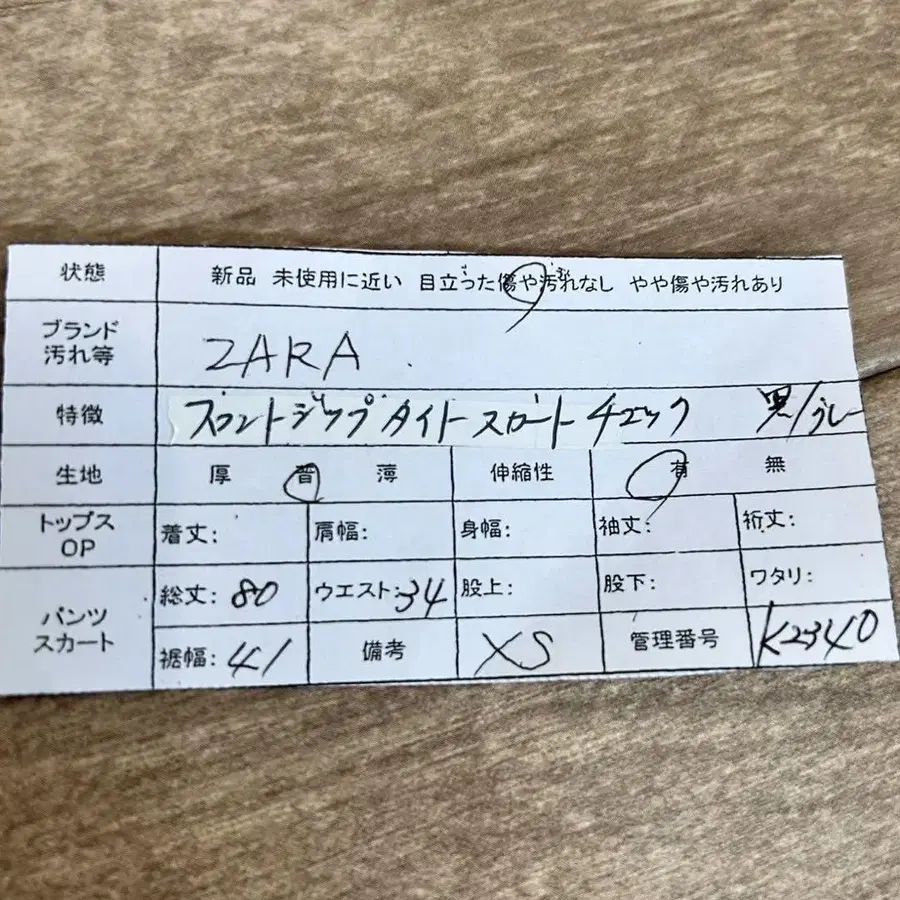 状態 新品 未使用に近い 目立った傷や汚れなし やや傷や汚れあり
ブランド
汚れ等 ZARA
特徴 フロントジップタイトスカートチェック 黒/グレー
生地 厚 普 薄 伸縮性 有 無
トップス
OP 着丈: 肩幅: 身幅: 袖丈: 裄丈:
パンツ
スカート 総丈: 80 ウエスト: 34 股上: 股下: ワタリ:
裾幅: 41 備考 XS 管理番号 K2340